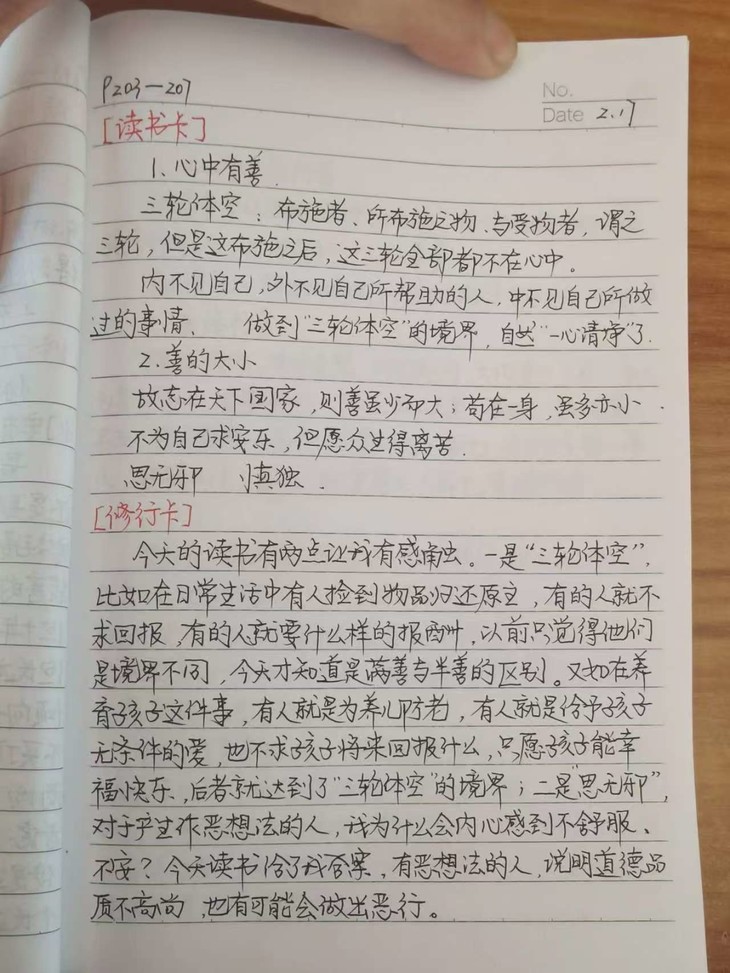 P203—207
No.
Date 2.17
[读书卡]
1. 心中有善.
三轮体空：布施者、所布施之物、与受物者，谓之
三轮，但是这布施之后，这三轮全部都不在心中。
内不见自己，外不见自己所帮助的人，中不见自己所做
过的事情、 做到“三轮体空”的境界，自然“一心清净”了.
2. 善的大小
故志在天下国家，则善虽少而大；苟在一身，虽多亦小.
不为自己求安乐，但愿众生得离苦.
思无邪 慎独.
[修行卡]
今天的读书有两点让我有感触。一是“三轮体空”，
比如在日常生活中有人捡到物品归还原主，有的人就不
求回报，有的人就要什么样的报酬，以前只觉得他们
是境界不同，今天才知道是满善与半善的区别。又如在养
育孩子这件事，有人就是为养儿防老，有人就是给予孩子
无条件的爱，也不求孩子将来回报什么，只愿孩子能幸
福快乐，后者就达到了“三轮体空”的境界；二是“思无邪”，
对于产生作恶想法的人，我为什么会内心感到不舒服、
不安？今天读书给了我答案，有恶想法的人，说明道德品
质不高尚，也有可能会做出恶行。